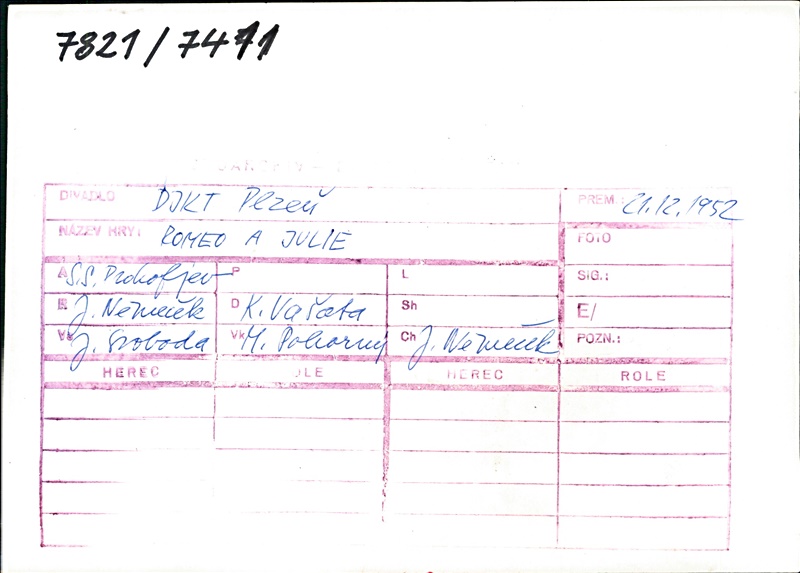 7821 / 7411
DIVADLO DJKT Plzeň PREM.: 21.12.1952
NÁZEV HRY: ROMEO A JULIE FOTO
A S.S. Prokofjev P L SIG.:
R J. Němeček D K. Vašata Sh E/
J. Svoboda Vk M. Pokorný Ch J. Němeček POZN.:
HEREC ROLE HEREC ROLE